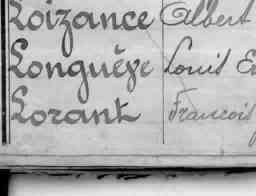 Loizance Albert
Longuêve Louis
Lorant François